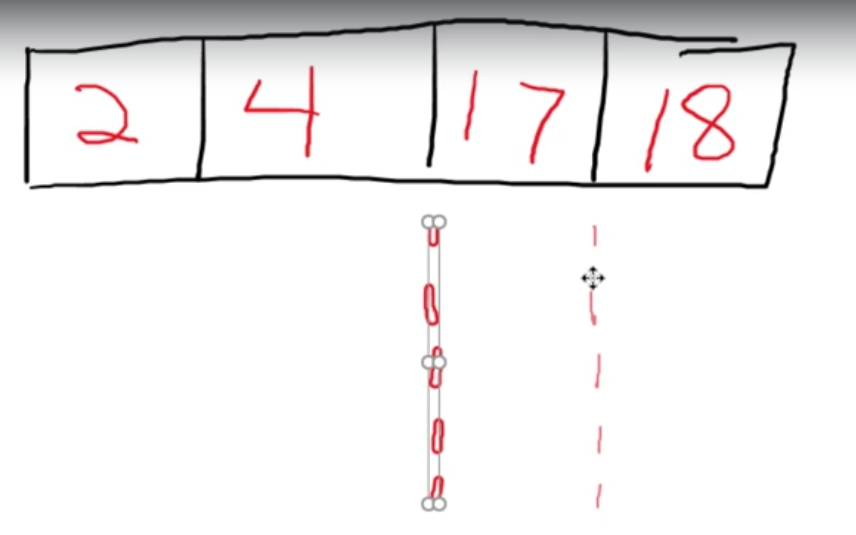 2 4 17 18